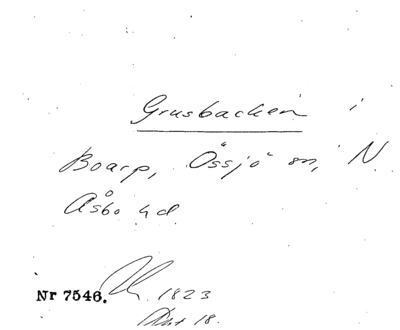 Grusbacken i
Boarp, Össjö sn, N.
Åsbo hd.
Nr 7546. 1823
18.